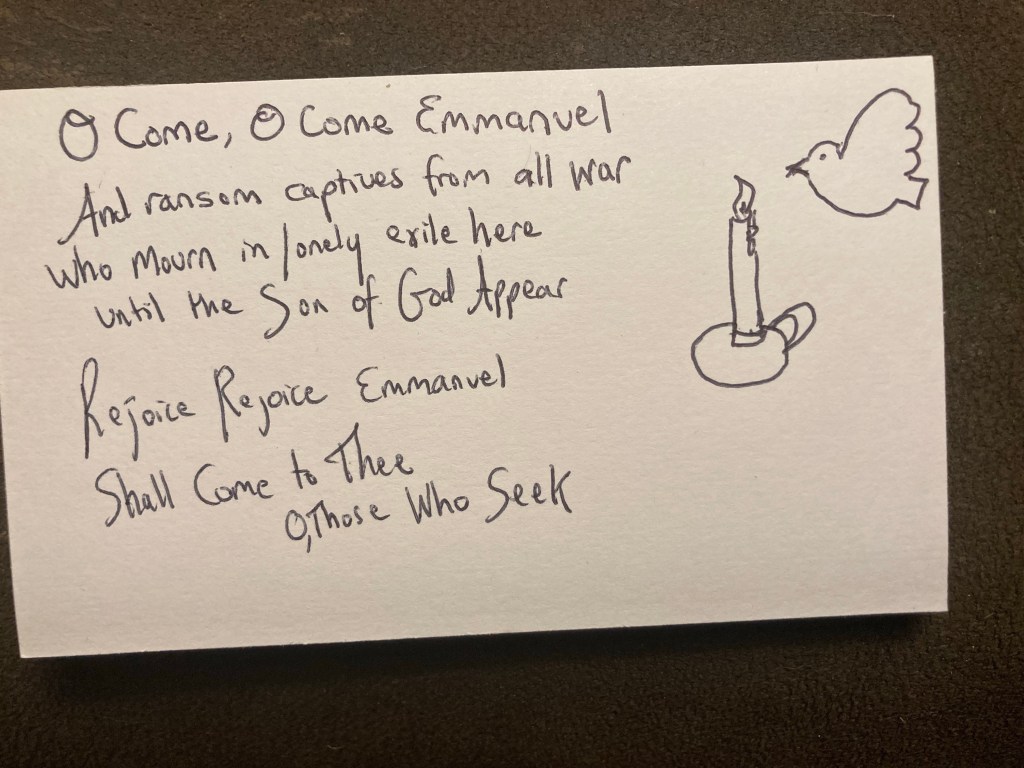 O Come, O Come Emmanuel
And ransom captives from all war
who mourn in lonely exile here
until the Son of God Appear
Rejoice Rejoice Emmanuel
Shall Come to Thee
O, Those Who Seek